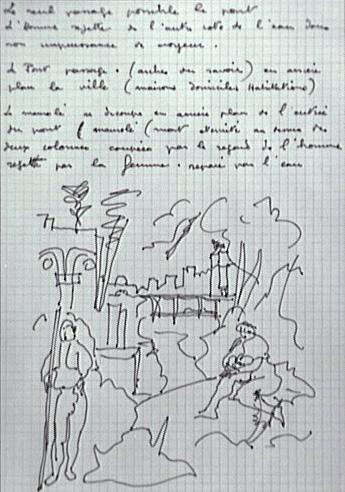 Le seul passage possible le pont
d'homme rejette de l'autre coté de l'eau dans
son impuissance de voyeur.
Pont passage. (arche du savoir) en arrière
plan la ville (maisons Domiciles Habitations)
Le se découpe en arrière plan de l'entrée
du pont (mort éternité au dessus des
deux colonnes coupées par le regard de l'homme
rejeté par la femme. separé par l'eau